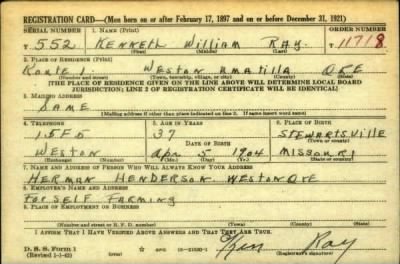 REGISTRATION CARD—(Men born on or after February 17, 1897 and on or before December 31, 1921)
SERIAL NUMBER 1. NAME (Print) ORDER NUMBER
T 552 KENNETH William RAY T 11718
(First) (Middle) (Last)
2. PLACE OF RESIDENCE (Print)
Route 1 WESTON UMATILLA ORE
(Number and street) (Town, township, village, or city) (County) (State)
[THE PLACE OF RESIDENCE GIVEN ON THE LINE ABOVE WILL DETERMINE LOCAL BOARD
JURISDICTION; LINE 2 OF REGISTRATION CERTIFICATE WILL BE IDENTICAL]
3. MAILING ADDRESS
SAME
[Mailing address if other than place indicated on line 2. If same insert word same]
4. TELEPHONE 5. AGE IN YEARS 6. PLACE OF BIRTH
15F5 37 STEWARTSVILLE
DATE OF BIRTH (Town or county)
WESTON Apr 5 1904 MISSOURI
(Exchange) (Number) (Mo.) (Day) (Yr.) (State or country)
7. NAME AND ADDRESS OF PERSON WHO WILL ALWAYS KNOW YOUR ADDRESS
HERMAN HENDERSON WESTON ORE
8. EMPLOYER'S NAME AND ADDRESS
For SELF FARMING
9. PLACE OF EMPLOYMENT OR BUSINESS
(Number and street or R. F. D. number) (Town) (County) (State)
I AFFIRM THAT I HAVE VERIFIED ABOVE ANSWERS AND THAT THEY ARE TRUE.
D. S. S. Form 1
(Revised 1-1-42) GPO 16-21630-1 Ken Ray
(Registrant's signature)